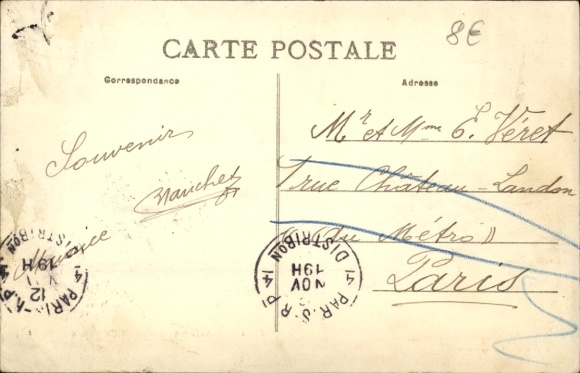 8€
CARTE POSTALE
Correspondance
Adresse
Souvenir
Mr et Mme E. Véret
rue Château-Landon
(du Métro)
Paris
PARIS
DISTRIBON
14
NOV
19H
PARIS
DISTRIBON
14
12
19H